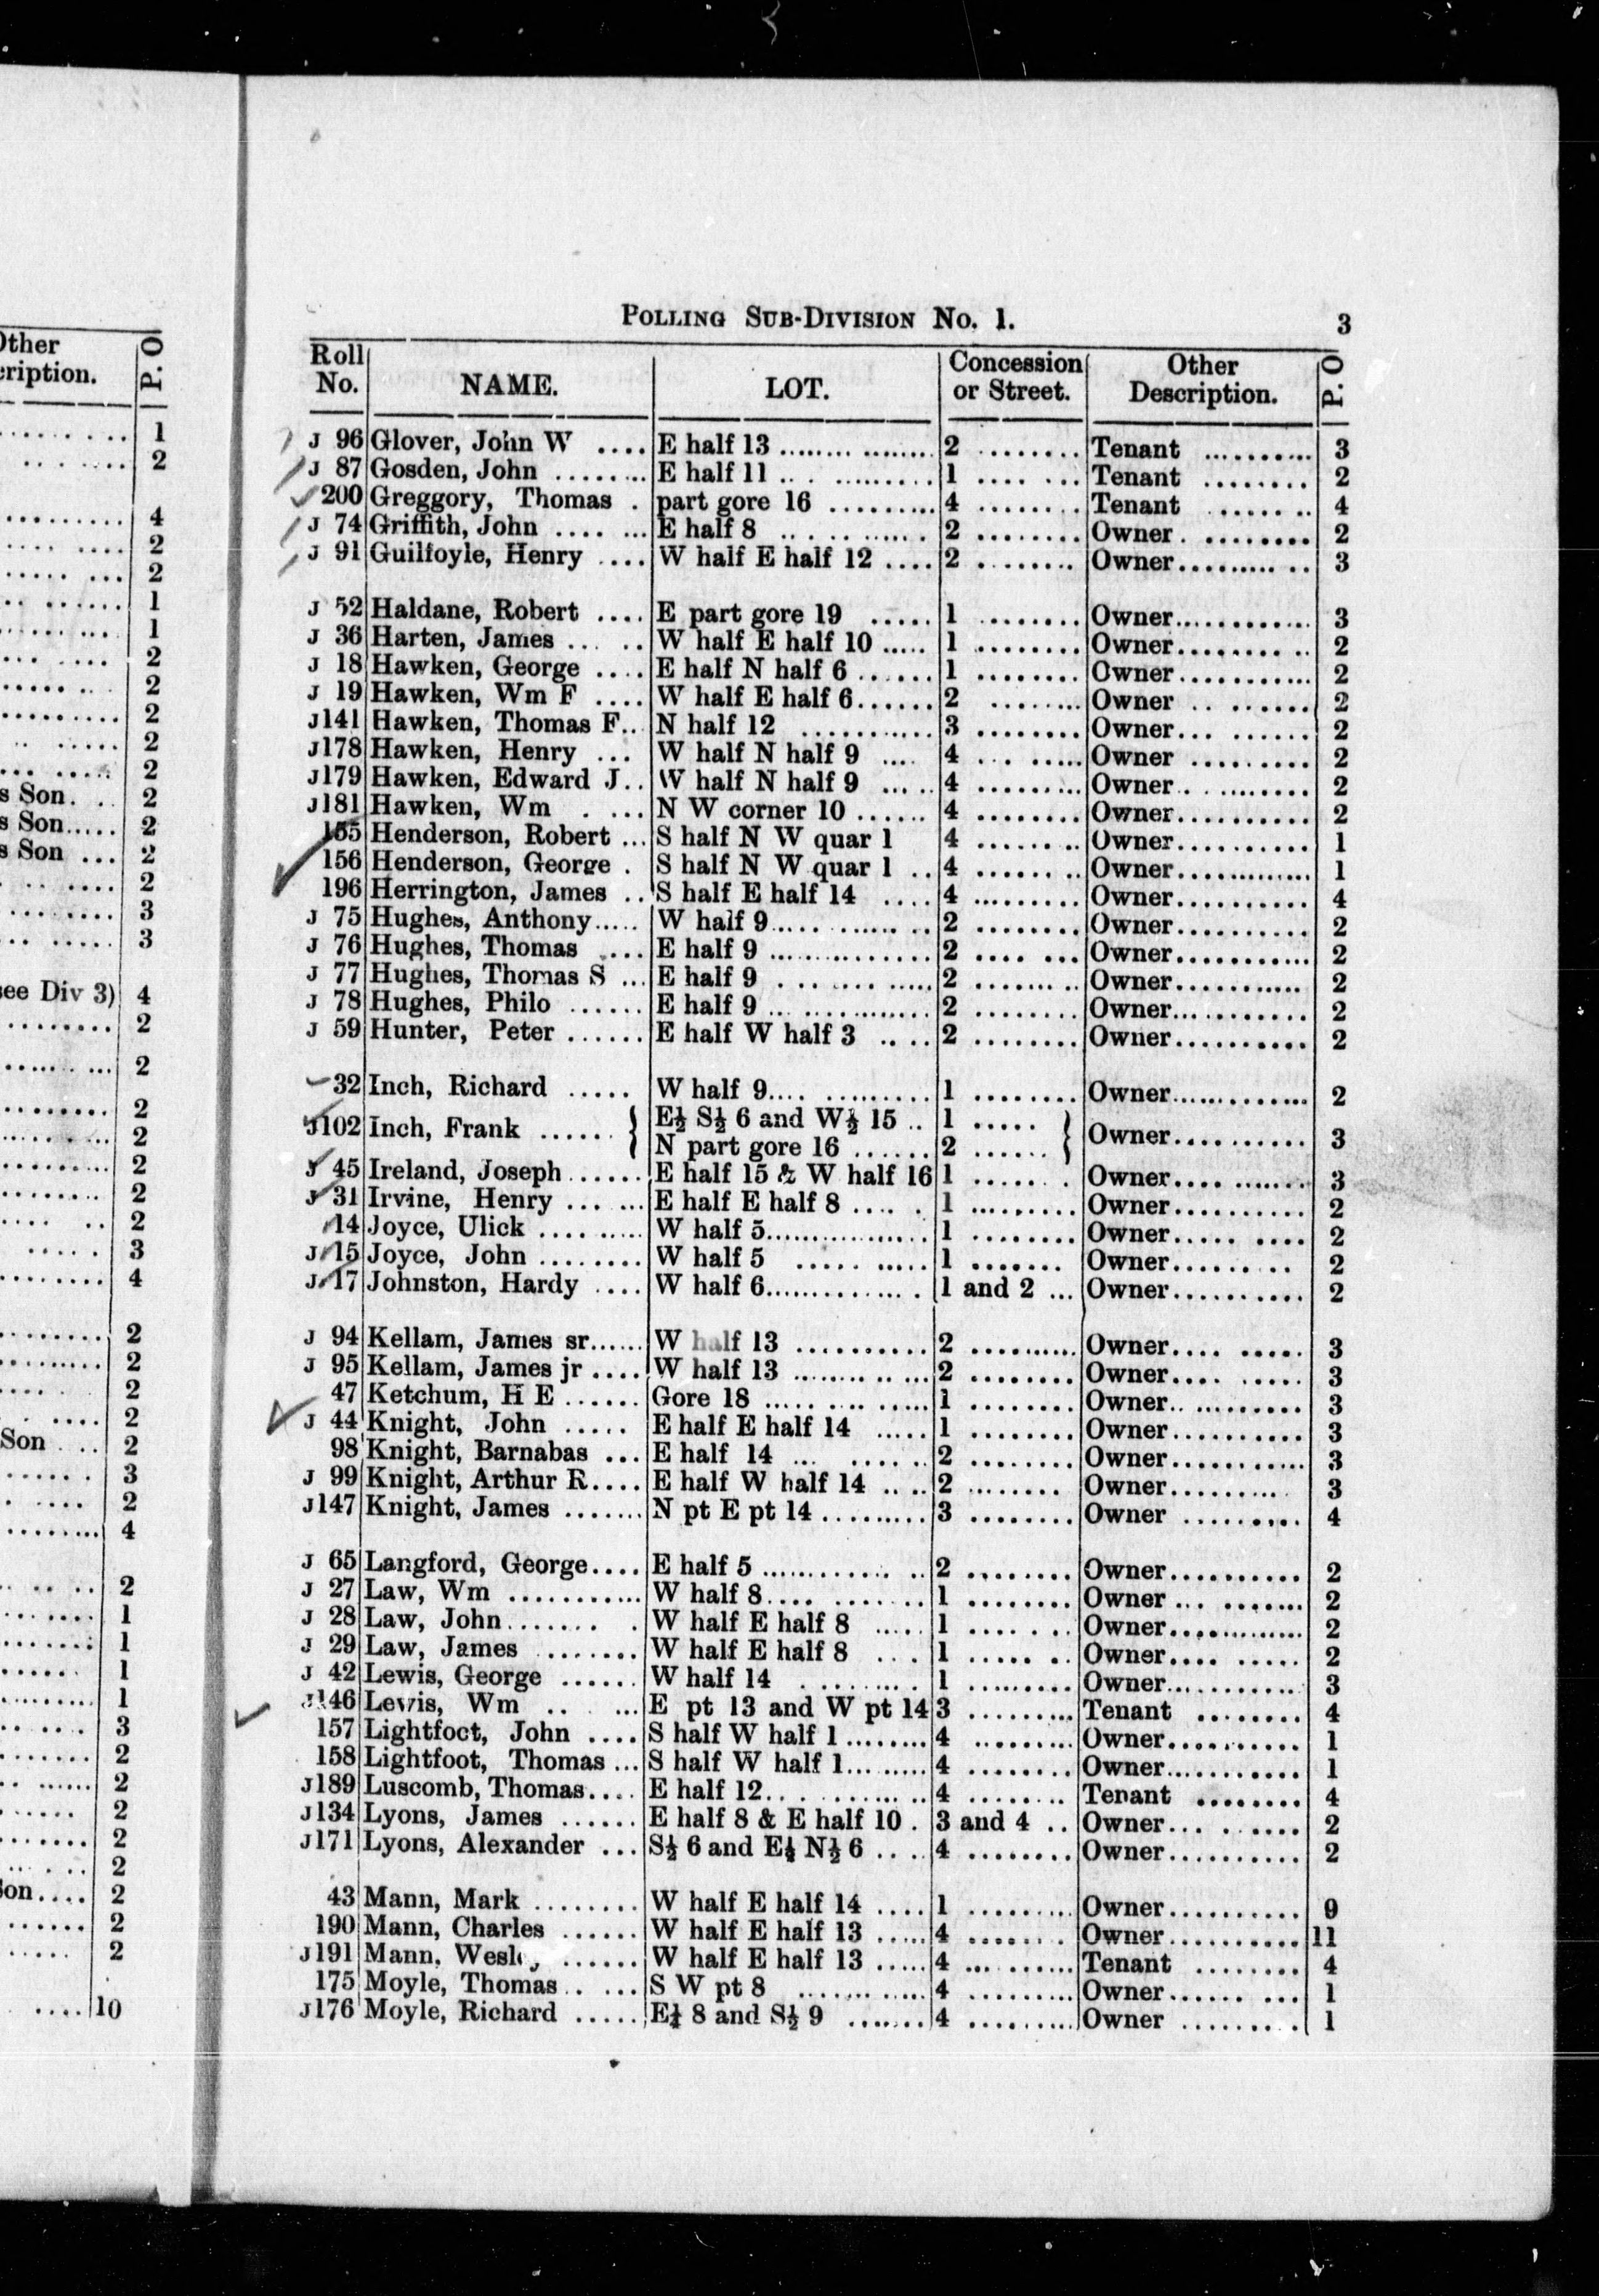 Other
cription.
P. O
1
2
4
2
2
1
1
2
2
2
2
2
s Son. 2
s Son 2
s Son 2
2
3
3
see Div 3) 4
2
2
2
2
2
2
2
3
4
2
2
2
2
Son 2
3
2
4
2
1
1
1
1
3
2
2
2
2
2
Son 2
2
2
10
POLLING SUB-DIVISION NO. 1. 3
Roll No. NAME. LOT. Concession or Street. Other Description. P. O
J 96 Glover, John W .... E half 13 ........ 2 ........ Tenant ........ 3
J 87 Gosden, John ........ E half 11 ........ 1 ........ Tenant ........ 2
200 Greggory, Thomas . part gore 16 ........ 4 ........ Tenant ........ 4
J 74 Griffith, John ........ E half 8 ........ 2 ........ Owner ........ 2
J 91 Guilfoyle, Henry .... W half E half 12 .... 2 ........ Owner ........ 3
J 52 Haldane, Robert .... E part gore 19 ..... 1 ........ Owner ........ 3
J 36 Harten, James ..... W half E half 10 ..... 1 ........ Owner ........ 2
J 18 Hawken, George .... E half N half 6 ...... 1 ........ Owner ........ 2
J 19 Hawken, Wm F .... W half E half 6 ...... 2 ........ Owner ........ 2
J141 Hawken, Thomas F.. N half 12 ........ 3 ........ Owner ........ 2
J178 Hawken, Henry ... W half N half 9 .... 4 ........ Owner ........ 2
J179 Hawken, Edward J.. W half N half 9 ..... 4 ........ Owner ........ 2
J181 Hawken, Wm .... N W corner 10 ...... 4 ........ Owner ........ 2
155 Henderson, Robert ... S half N W quar 1 4 ........ Owner ........ 1
156 Henderson, George . S half N W quar 1 .. 4 ........ Owner ........ 1
196 Herrington, James .. S half E half 14 .... 4 ........ Owner ........ 4
J 75 Hughes, Anthony..... W half 9 ........ 2 ........ Owner ........ 2
J 76 Hughes, Thomas .... E half 9 ........ 2 ........ Owner ........ 2
J 77 Hughes, Thomas S ... E half 9 ........ 2 ........ Owner ........ 2
J 78 Hughes, Philo ...... E half 9 ........ 2 ........ Owner ........ 2
J 59 Hunter, Peter ...... E half W half 3 .... 2 ........ Owner ........ 2
32 Inch, Richard ..... W half 9 ........ 1 ........ Owner ........ 2
J102 Inch, Frank ...... { E½ S½ 6 and W½ 15 .. 1 ..... } Owner ........ 3
N part gore 16 ...... 2 ......
J 45 Ireland, Joseph ...... E half 15 & W half 16 1 ........ Owner ........ 3
J 31 Irvine, Henry ...... E half E half 8 ..... 1 ........ Owner ........ 2
14 Joyce, Ulick ........ W half 5 ........ 1 ........ Owner ........ 2
J 15 Joyce, John ........ W half 5 ........ 1 ........ Owner ........ 2
J 17 Johnston, Hardy .... W half 6 ........ 1 and 2 ... Owner ........ 2
J 94 Kellam, James sr...... W half 13 ........ 2 ........ Owner ........ 3
J 95 Kellam, James jr .... W half 13 ........ 2 ........ Owner ........ 3
47 Ketchum, H E ...... Gore 18 ........ 1 ........ Owner ........ 3
J 44 Knight, John ..... E half E half 14 ..... 1 ........ Owner ........ 3
98 Knight, Barnabas ... E half 14 ........ 2 ........ Owner ........ 3
J 99 Knight, Arthur R.... E half W half 14 .... 2 ........ Owner ........ 3
J147 Knight, James ....... N pt E pt 14 ........ 3 ........ Owner ........ 4
J 65 Langford, George.... E half 5 ........ 2 ........ Owner ........ 2
J 27 Law, Wm ........ W half 8 ........ 1 ........ Owner ........ 2
J 28 Law, John ........ W half E half 8 ..... 1 ........ Owner ........ 2
J 29 Law, James ....... W half E half 8 .... 1 ........ Owner ........ 2
J 42 Lewis, George ...... W half 14 ........ 1 ........ Owner ........ 3
J146 Lewis, Wm ..... E pt 13 and W pt 14 3 ........ Tenant ........ 4
157 Lightfoot, John .... S half W half 1 ........ 4 ........ Owner ........ 1
158 Lightfoot, Thomas ... S half W half 1 ........ 4 ........ Owner ........ 1
J189 Luscomb, Thomas.... E half 12 ........ 4 ........ Tenant ........ 4
J134 Lyons, James ...... E half 8 & E half 10 . 3 and 4 .. Owner ........ 2
J171 Lyons, Alexander ... S½ 6 and E½ N½ 6 .... 4 ........ Owner ........ 2
43 Mann, Mark ........ W half E half 14 .... 1 ........ Owner ........ 9
190 Mann, Charles ...... W half E half 13 ..... 4 ........ Owner ........ 11
J191 Mann, Wesl ...... W half E half 13 ..... 4 ........ Tenant ........ 4
175 Moyle, Thomas ..... S W pt 8 ........ 4 ........ Owner ........ 1
J176 Moyle, Richard ..... E¼ 8 and S½ 9 ....... 4 ........ Owner ........ 1